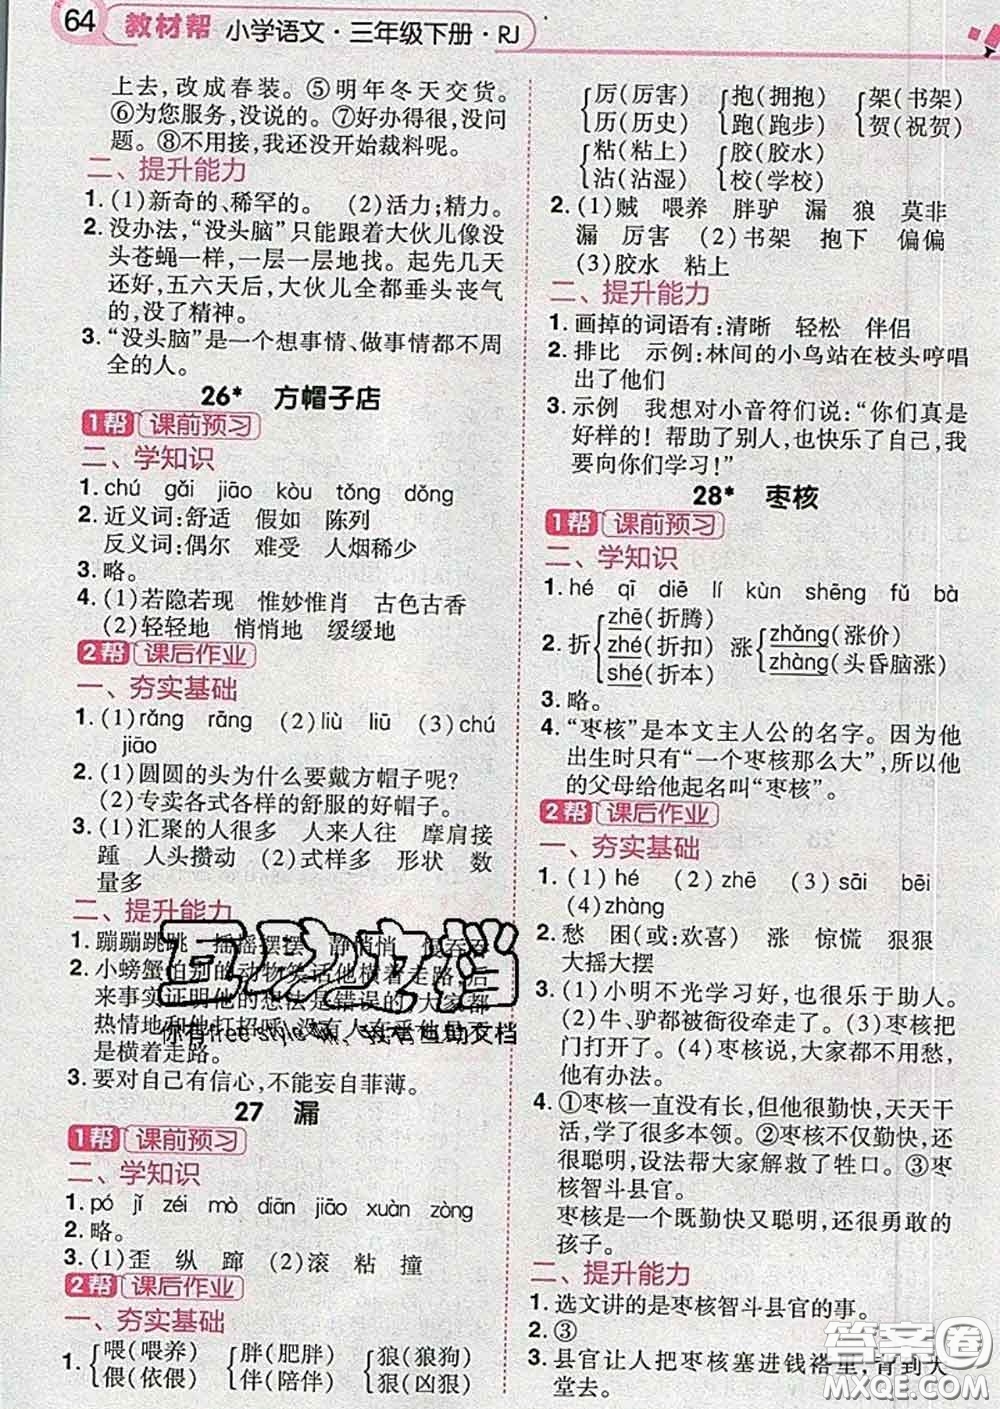 64 教材帮 小学语文·三年级下册·RJ
上去,改成春装。⑤明年冬天交货。
⑥为您服务,没说的。⑦好办得很,没问
题。⑧不用接,我还没开始裁料呢。
二、提升能力
1. (1)新奇的、稀罕的。 (2)活力;精力。
2. 没办法,“没头脑”只能跟着大伙儿像没
头苍蝇一样,一层一层地找。起先几天
还好,五六天后,大伙儿全都垂头丧气
的,没了精神。
3. “没头脑”是一个想事情、做事情都不周
全的人。
26* 方帽子店
1帮 课前预习
二、学知识
1. chú gǎi jiāo kòu tǒng dǒng
2. 近义词:舒适 假如 陈列
反义词:偶尔 难受 人烟稀少
3. 略。
4. (1)若隐若现 惟妙惟肖 古色古香
(2)轻轻地 悄悄地 缓缓地
2帮 课后作业
一、夯实基础
1. (1)rǎng rāng (2)liù liū (3)chú
jiāo
2. (1)圆圆的头为什么要戴方帽子呢?
(2)专卖各式各样的舒服的好帽子。
3. (1)汇聚的人很多 人来人往 摩肩接
踵 人头攒动 (2)式样多 形状 数
量多
二、提升能力
1. 蹦蹦跳跳 摇摇摆摆 静悄悄 慢吞吞
2. 小螃蟹怕别的动物笑话他横着走路,后
来事实证明他的想法是错误的,大家都
热情地和他打招呼,没有人在乎他是不
是横着走路。
3. 要对自己有信心,不能妄自菲薄。
27 漏
1帮 课前预习
二、学知识
1. pó jǐ zéi mò diān jiāo xuàn zòng
2. 略。
3. (1)歪 纵 蹿 (2)滚 粘 撞
2帮 课后作业
一、夯实基础
1. 喂(喂养) 胖(肥胖) 狼(狼狗)
偎(依偎) 伴(陪伴) 狠(凶狠)
厉(厉害) 抱(拥抱) 架(书架)
历(历史) 跑(跑步) 贺(祝贺)
粘(粘上) 胶(胶水)
沾(沾湿) 校(学校)
2. (1)贼 喂养 胖驴 漏 狼 莫非
漏 厉害 (2)书架 抱下 偏偏
(3)胶水 粘上
二、提升能力
1. 画掉的词语有:清晰 轻松 伴侣
2. 排比 示例:林间的小鸟站在枝头哼唱
出了他们
3. 示例 我想对小音符们说:“你们真是
好样的!帮助了别人,也快乐了自己,我
要向你们学习!”
28* 枣核
1帮 课前预习
二、学知识
1. hé qī diē lí kùn shēng fǔ bà
2. 折 zhē(折腾) zhé(折扣) shé(折本) 涨 zhǎng(涨价) zhàng(头昏脑涨)
3. 略。
4. “枣核”是本文主人公的名字。因为他
出生时只有“一个枣核那么大”,所以他
的父母给他起名叫“枣核”。
2帮 课后作业
一、夯实基础
1. (1)hé (2)zhē (3)sāi bēi
(4)zhàng
2. 愁 困(或:欢喜) 涨 惊慌 狠狠
大摇大摆
3. (1)小明不光学习好,也很乐于助人。
(2)牛、驴都被衙役牵走了。(3)枣核把
门打开了。(4)枣核说,大家都不用愁,
他有办法。
4. ①枣核一直没有长,但他勤快,天天干
活,学了很多本领。②枣核不仅勤快,还
很聪明,设法帮大家解救了牲口。③枣
核智斗县官。
枣核是一个既勤快又聪明,还很勇敢的
孩子。
二、提升能力
1. 选文讲的是枣核智斗县官的事。
2. ③
3. 县官让人把枣核塞进钱褡里,背到大
堂去。
互助文档
你有free style吗、我有互助文档
答案圈
MXQE.COM